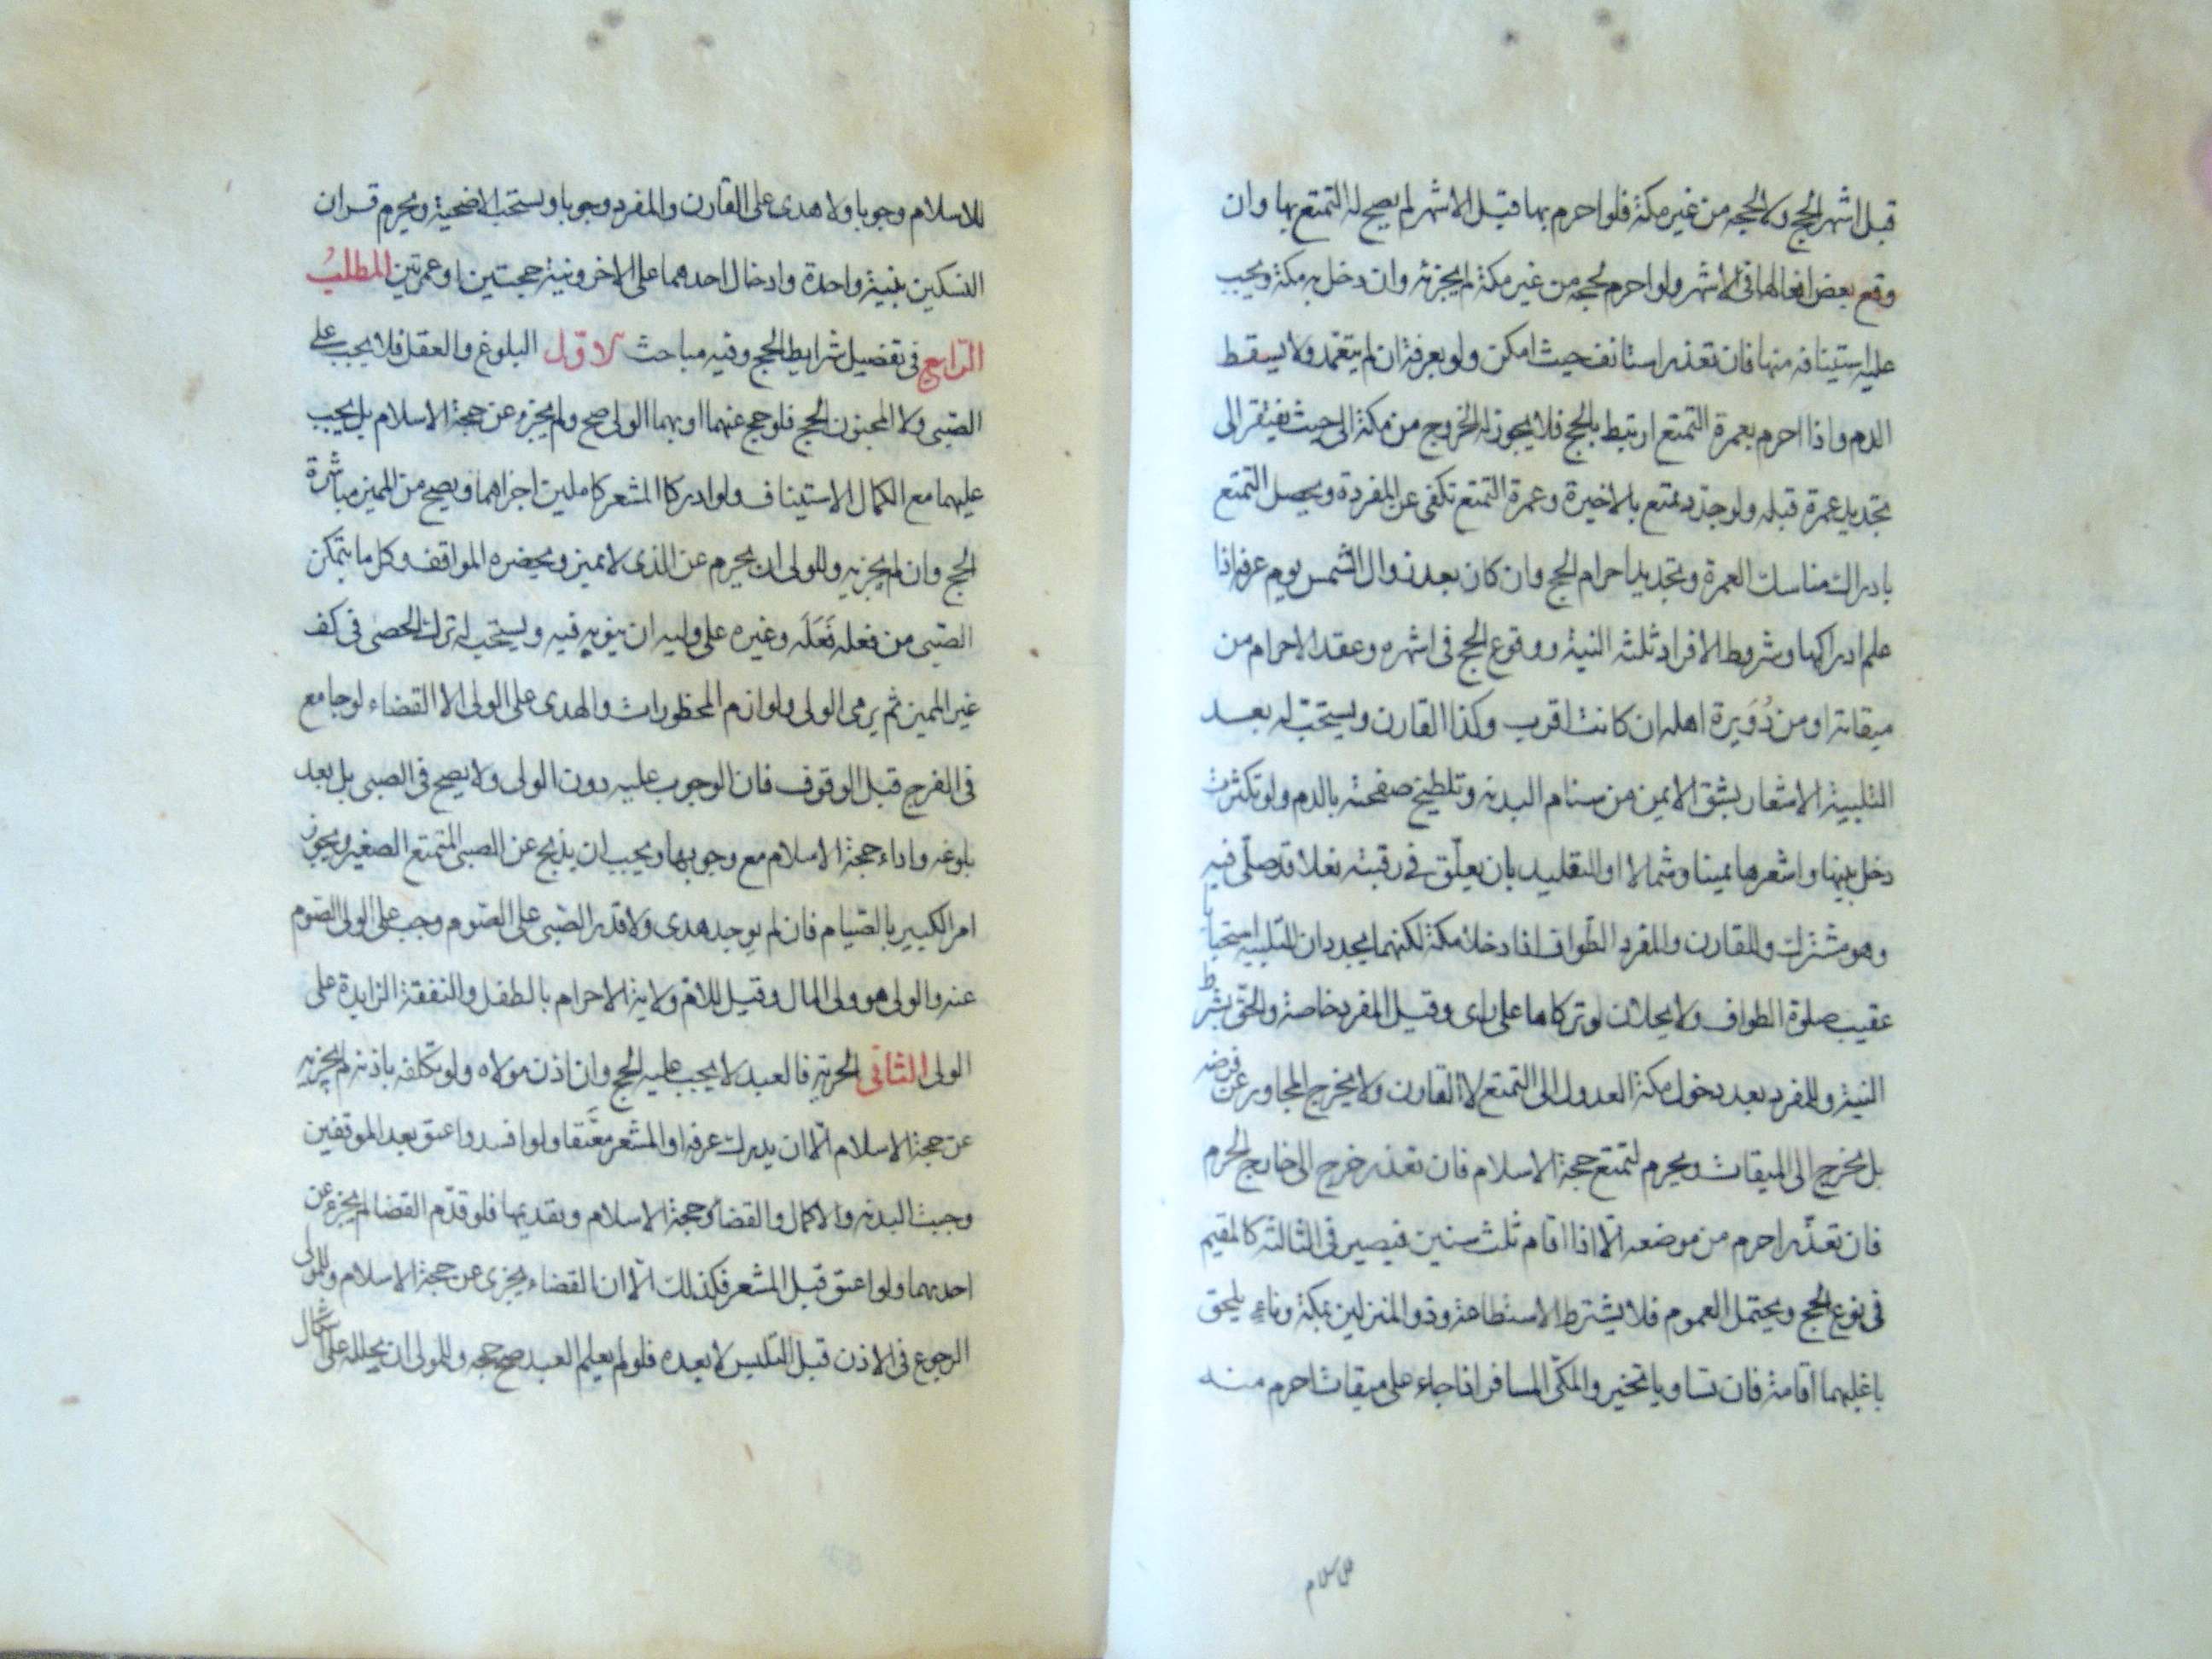 قبل اشهر الحج ولا الحجه من غير مكة فلو احرم بها قبل الاشهر لم يصح له التمتع بها وان
وقع بعض افعالها فى الاشهر ولو احرم لحجه من غير مكة لم يجزئه وان دخل به مكة ويجب
عليه استينافه منها فان تعذر استانف حيث امكن ولو بعرفة ان لم يتعمد ولا يسقط
الدم واذا احرم بعمرة التمتع ارتبط بالحج فلا يجوز له الخروج من مكة الى حيث يفتقر الى
تجديد عمرة قبله ولو جدد تمتع بالاخيرة وعمرة التمتع تكفى عن المفردة ويحصل التمتع
بادراك مناسك العمرة وتجديد احرام الحج وان كان بعد زوال الشمس يوم عرفه اذا
علم ادراكها وشروط الافراد ثلثه النية ووقوع الحج فى اشهره وعقد الاحرام من
ميقاته او من دُوَيرة اهله ان كانت اقرب وكذا القارن ويستحب له بعد
التلبية الاشعار بشق الايمن من سنام البدنه وتلطيخ صفحته بالدم ولو تكثرت
دخل بينها واشعرها يمينا وشمالا او التقليد بان يعلّق فى رقبته نعلا قد صلّى فيه
وهو مشترك وللقارن والمفرد الطواف اذا دخلا مكة لكنهما يجددان التلبيه استحبابا
عقيب صلوة الطواف ولا يحلان لو تركاها على راى وقيل المفرد خاصة والحق بشرط
النية وللمفرد بعد دخول مكة العدول الى التمتع لا القارن ولا يخرج المجاور عن فرضه
بل يخرج الى الميقات ويحرم لتمتع حجة الاسلام فان تعذر خرج الى خارج الحرم
فان تعذّر احرم من موضعه الّا اذا اقام ثلث سنين فيصير فى الثالثه كالمقيم
فى نوع الحج ويحتمل العموم فلا يشترط الاستطاعة وذو المنزلين بمكة وناءٍ يلحق
باغلبهما اقامة فان تساويا تخير والمكّى المسافر اذا جاء على ميقات احرم منه
للاسلام
للاسلام وجوبا ولا هدى على القارن والمفرد وجوبا ويستحب الاضحية ويحرم قران
النسكين بنية واحدة وادخال احدهما على الاخر ونية حجتين او عمرتين المطلبُ
الرّابع فى تفصيل شرايط الحج وفيه مباحث الاوّل البلوغ والعقل فلا يجب على
الصّبى ولا المجنون الحج فلو حج عنهما او بهما الولى صح ولم يجز عن حجة الاسلام بل يجب
عليهما مع الكمال الاستيناف ولو ادركا المشعر كاملين اجزاهما ويصح من المميز مباشرة
الحج وان لم يجزيه وللولى ان يحرم عن الذى لا يميز ويحضره المواقف وكل ما يتمكن
الصّبى من فعله فَعَلَه وغيره على وليه ان ينوبه فيه ويستحب له ترك الحصى فى كف
غير المميز ثم يرمى الولى ولوازم المحظورات والهدى على الولى الا القضاء لو جامع
فى الفرج قبل الوقوف فان الوجوب عليه دون الولى ولا يصح فى الصبى بل بعد
بلوغه واداء حجة الاسلام مع وجوبها ويجب ان يذبح عن الصبى المتمتع الصغير ويجوز
امر الكبير بالصّيام فان لم يوجد هدى ولا قدر الصّبى على الصّوم وجب على الولى الصّوم
عنه والولى هو ولى المال وقيل للام ولاية الاحرام بالطفل والنفقة الزايدة على
الولى الثانى الحرية فالعبد لا يجب عليه الحج وان اذن مولاه ولو تكلفه باذنه لم يجزيه
عن حجة الاسلام الّا ان يدرك عرفه او المشعر معتَقا ولو افسد واعتق بعد الموقفين
وجبت البدنه والاكمال والقضاء وحجة الاسلام ويقدمها فلو قدّم القضا لم يجزء عن
احديهما ولو اعتق قبل المشعر فكذلك الّا ان القضاء يجزى عن حجة الاسلام وللمولى
الرجوع فى الاذن قبل التلبس لا بعده فلو لم يعلم العبد صح حجه وللمولى ان يحلله على اشكال